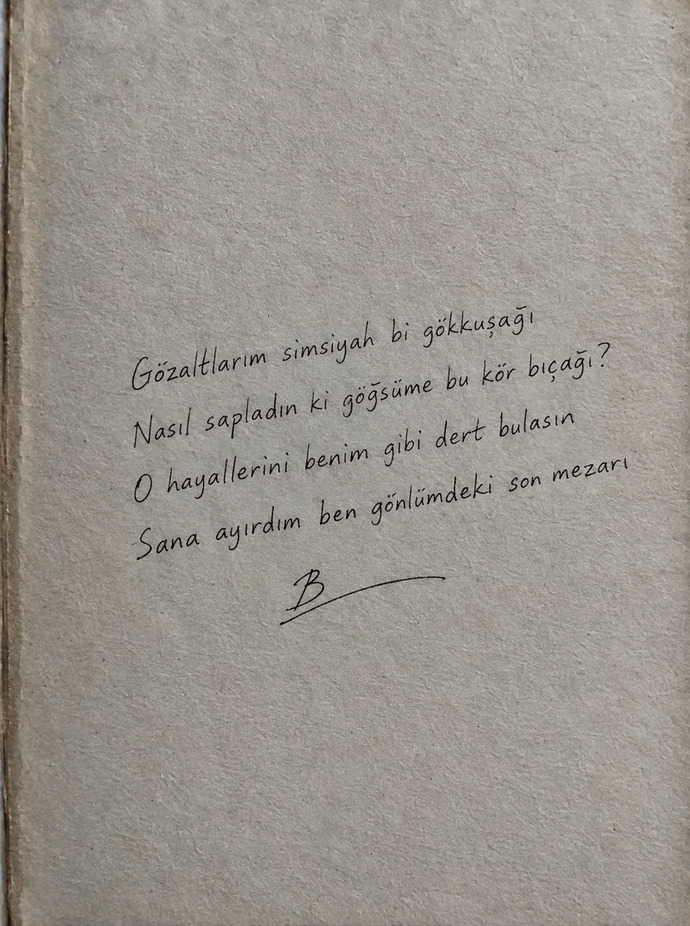 Gözaltlarım simsiyah bi gökkuşağı
Nasıl sapladın ki göğsüme bu kör bıçağı?
O hayallerini benim gibi dert bulasın
Sana ayırdım ben gönlümdeki son mezarı
B